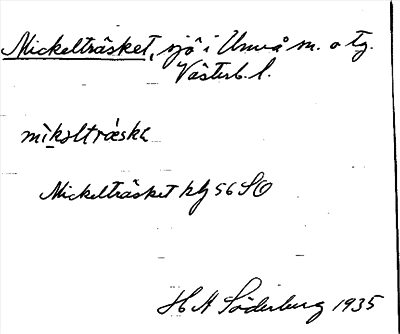 Mickelträsket, sjö i Umeå sn. o tg.
Västerb. l.
mìkəlträ́skə
Mickelträsket hfg 56 SO
H A Söderberg 1935